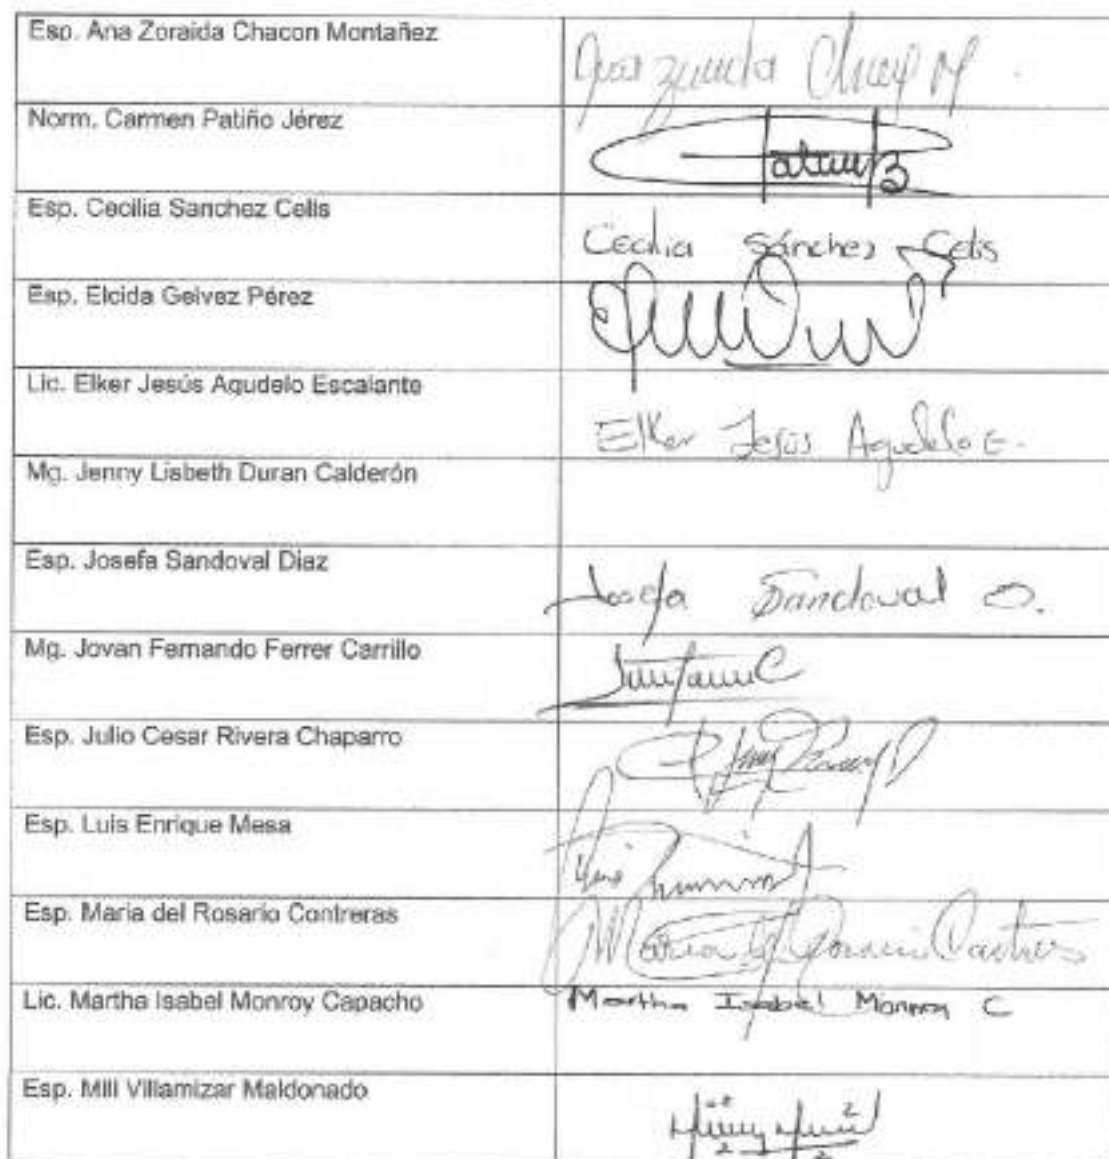 Esp. Ana Zoraida Chacon Montañez
Norm. Carmen Patiño Jérez
Esp. Cecilia Sanchez Celis
Cecilia Sánchez Celis
Esp. Elcida Gelvez Pérez
Lic. Elker Jesús Agudelo Escalante
Elker Jesús Agudelo E.
Mg. Jenny Lisbeth Duran Calderón
Esp. Josefa Sandoval Diaz
Josefa Sandoval D.
Mg. Jovan Fernando Ferrer Carrillo
Esp. Julio Cesar Rivera Chaparro
Esp. Luis Enrique Mesa
Luis
Esp. Maria del Rosario Contreras
Maria
Lic. Martha Isabel Monroy Capacho
Martha Isabel Monroy C
Esp. Mill Villamizar Maldonado